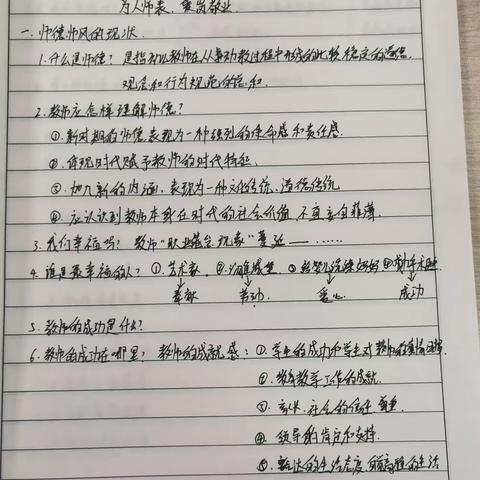 为人师表，爱岗敬业
一.师德师风的现状.
1.什么是师德？是指可以教师在从事功教过程中形成的比较稳定的道德
观念和行为规范的总和.
2.教师应怎样理解师德？
①.新时期的师德表现为一种强烈的使命感和责任感.
②.体现时代赋予教师的时代特征.
③.加入新的内涵.表现为一种文化传统、道德传统
④.应认识到教师本身在时代的社会价值，不宜妄自菲薄.
3.我们幸福吗？教师"职业倦怠现象"蔓延——……
4.谁是最幸福的人？①.艺术家.
奉献 劳动. 爱心 成功
5.教师的成功是什么？
6.教师的成功在哪里？教师的成就感：①.学生的成功和学生对教师的
②.教育教学工作的成就.
③.家长.社会的信任 尊重.
④.领导的肯定和支持.
⑤.豁达的生活态度.的生活